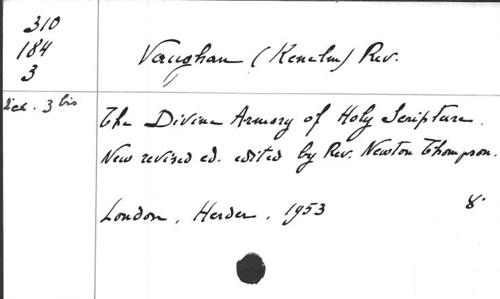 310
184
3
Vaughan (Kenelm) Rev.
3 bis
The Divine Armory of Holy Scripture.
New revised ed. edited by Rev. Newton Thompson.
London, Herder, 1953 8°